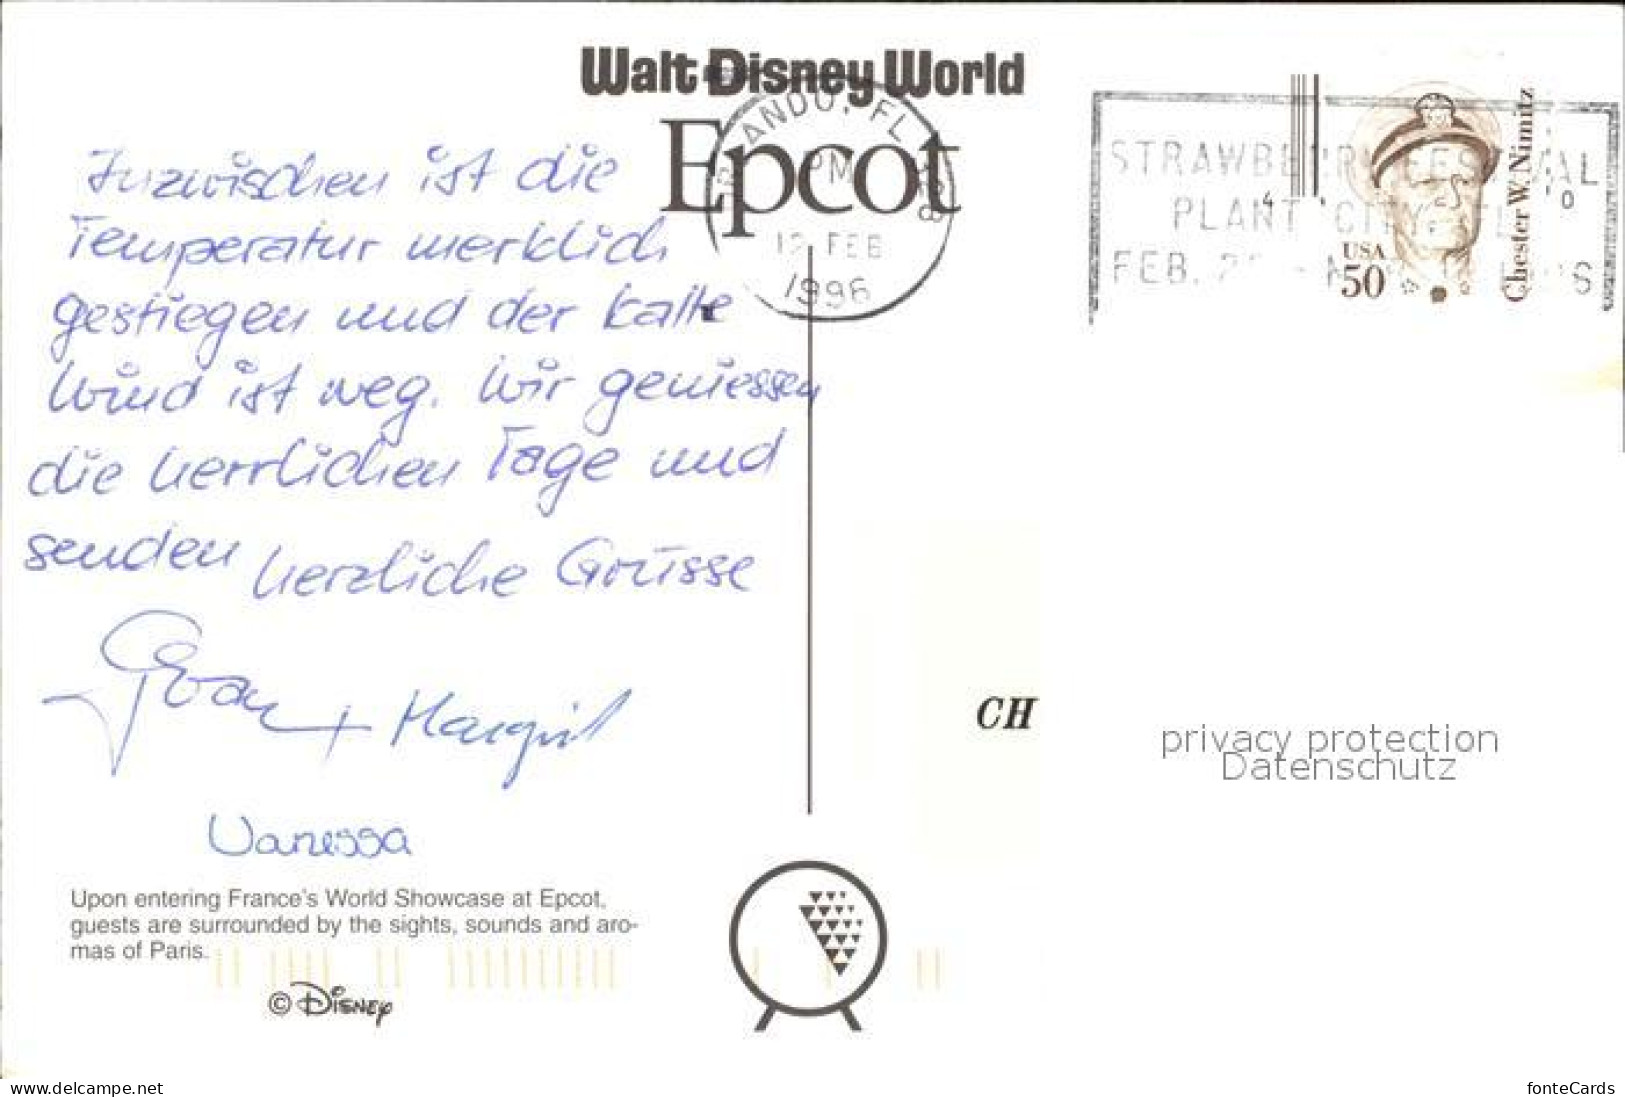 Walt Disney World
Epcot
ANDO, FL 328
PM
12 FEB
1996
STRAWBERRY FESTIVAL
PLANT CITY, FL
FEB. 2
USA
50
Chester W. Nimitz
Inzwischen ist die
Temperatur merklich
gestiegen und der kalte
Wind ist weg. Wir geniessen
die herrlichen Tage und
senden herzliche Grüsse
+ Margrit
Vanessa
CH
privacy protection
Datenschutz
Upon entering France's World Showcase at Epcot,
guests are surrounded by the sights, sounds and aro-
mas of Paris.
© Disney
www.delcampe.net
fonteCards